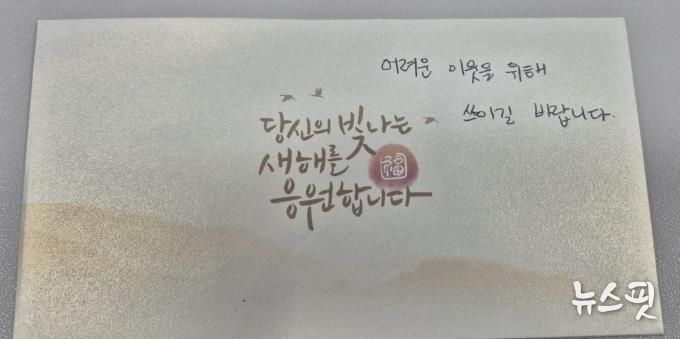 어려운 이웃을 위해
쓰이길 바랍니다.
당신의 빛나는
새해를
福
응원합니다
뉴스핏